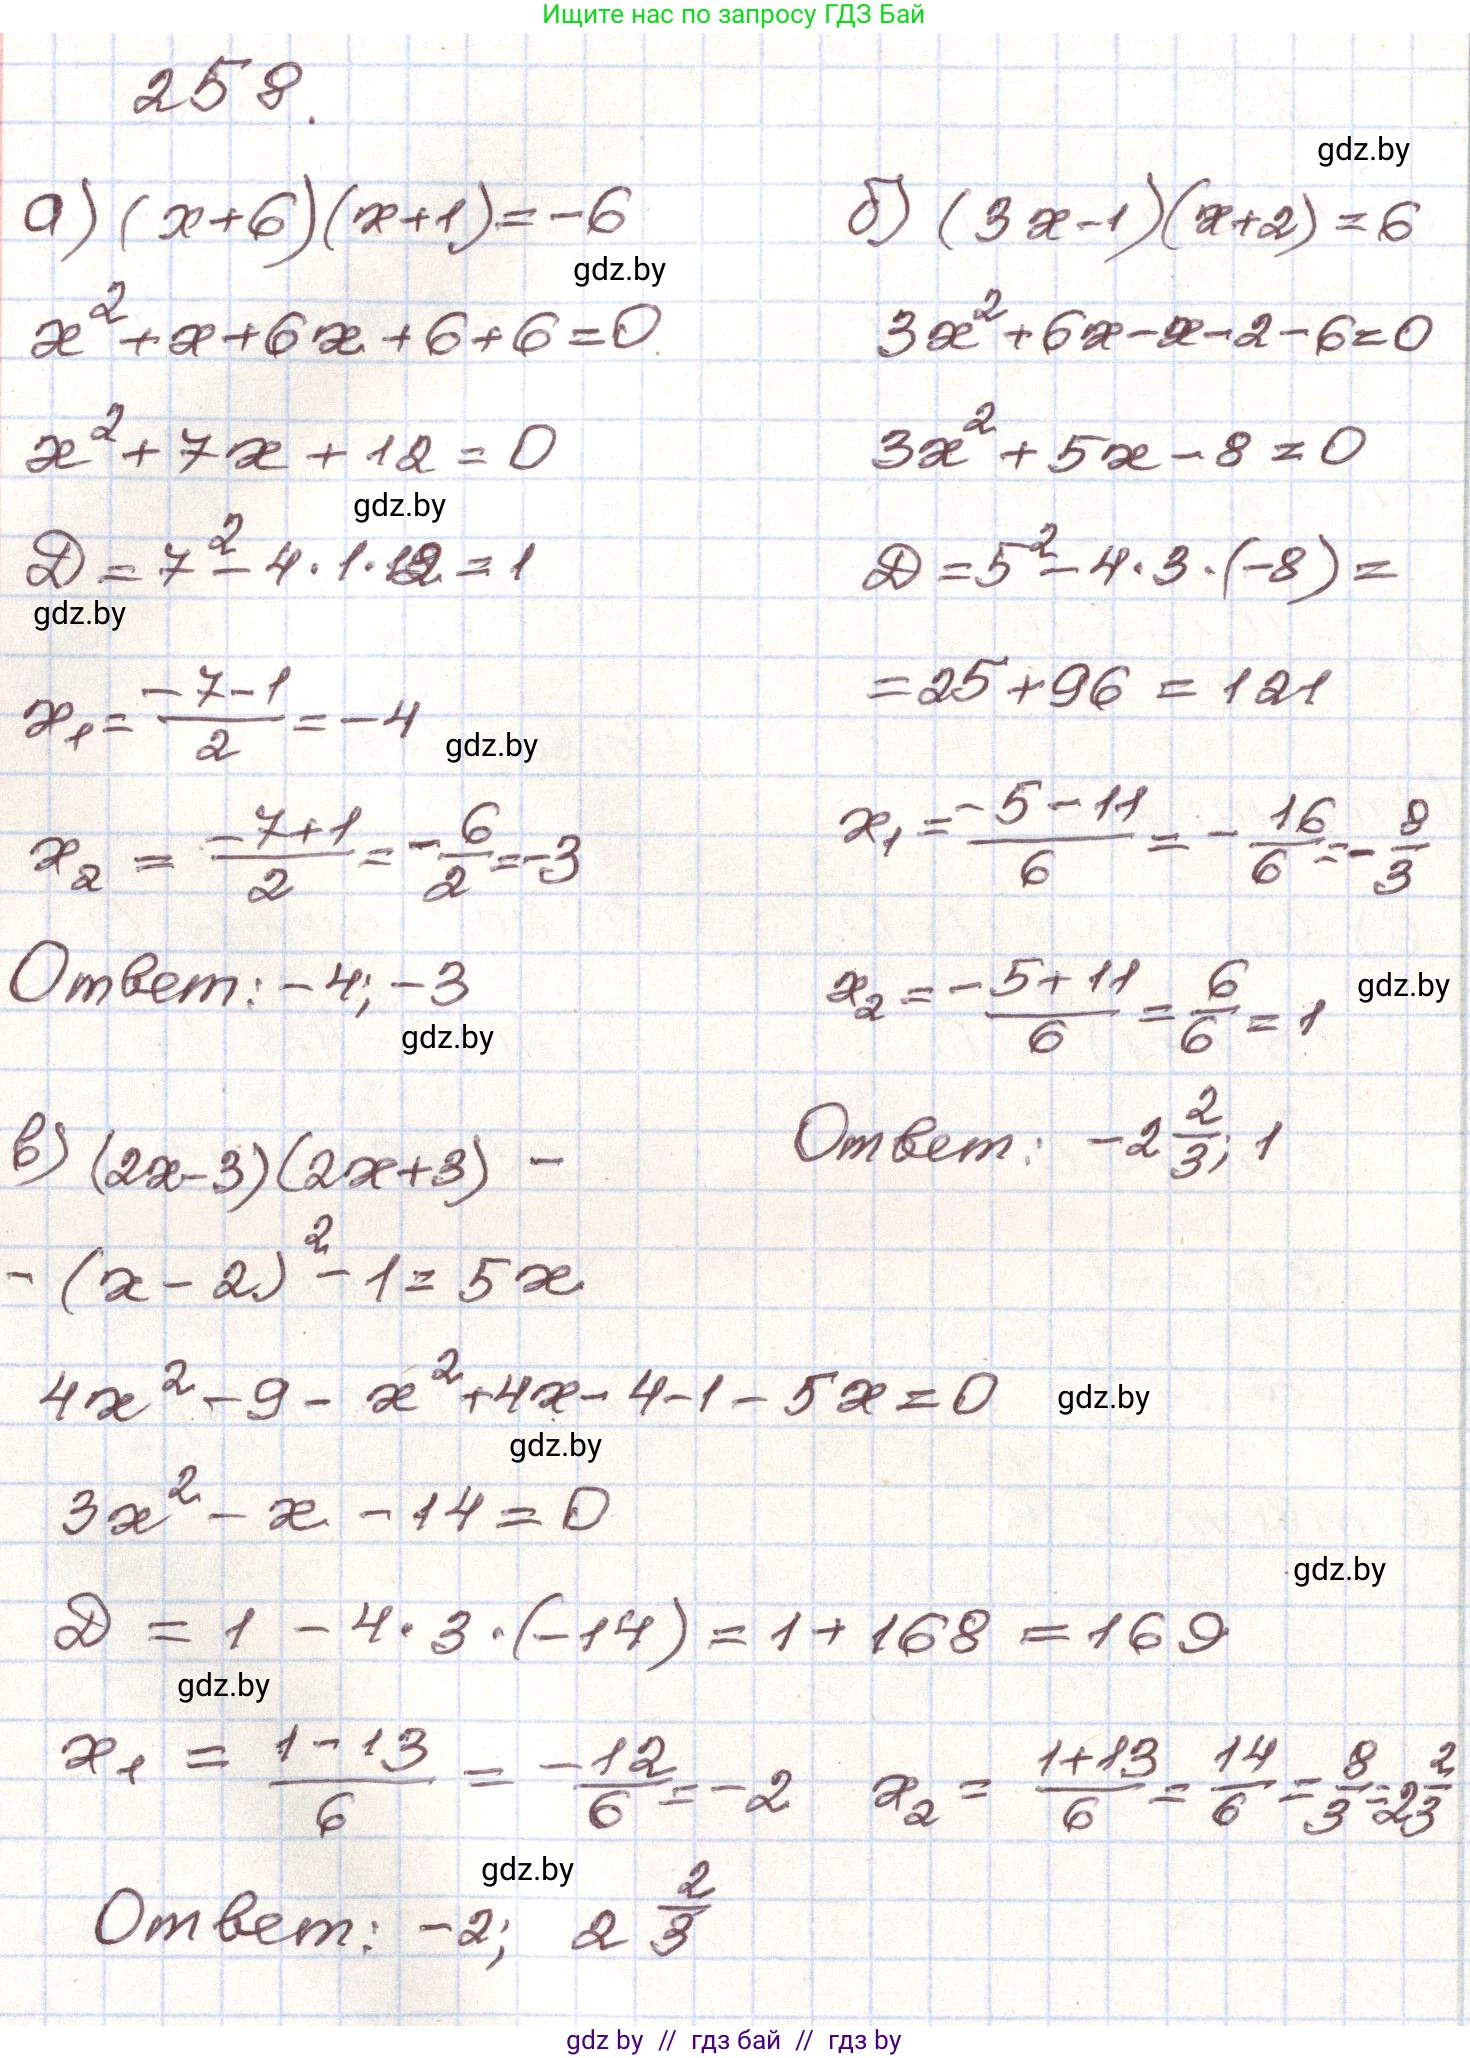 Ищите нас по запросу ГДЗ Бай
258.
gdz.by
а) (x+6)(x+1)=-6
gdz.by
x²+x+6x+6+6=0
x²+7x+12=0
gdz.by
Д=7²-4·1·12=1
gdz.by
x₁=(-7-1)/2=-4
gdz.by
x₂=(-7+1)/2=-6/2=-3
Ответ: -4; -3
gdz.by
б) (3x-1)(x+2)=6
3x²+6x-x-2-6=0
3x²+5x-8=0
Д=5²-4·3·(-8)=
=25+96=121
x₁=(-5-11)/6=-16/6=-8/3
x₂=(-5+11)/6=6/6=1
gdz.by
Ответ: -2 2/3; 1
в) (2x-3)(2x+3)-
-(x-2)²-1=5x
4x²-9-x²+4x-4-1-5x=0
gdz.by
gdz.by
3x²-x-14=0
gdz.by
Д=1-4·3·(-14)=1+168=169
gdz.by
x₁=(1-13)/6=-12/6=-2 x₂=(1+13)/6=14/6=8/3=2 2/3
gdz.by
Ответ: -2; 2 2/3
gdz by // гдз бай // гдз by